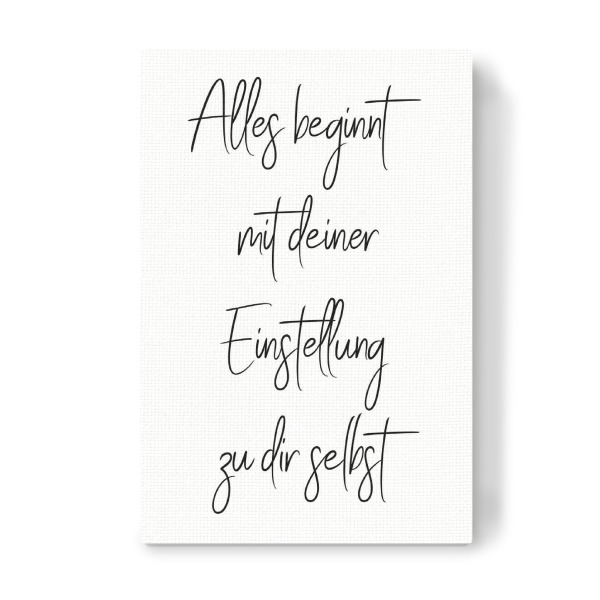 Alles beginnt
mit deiner
Einstellung
zu dir selbst